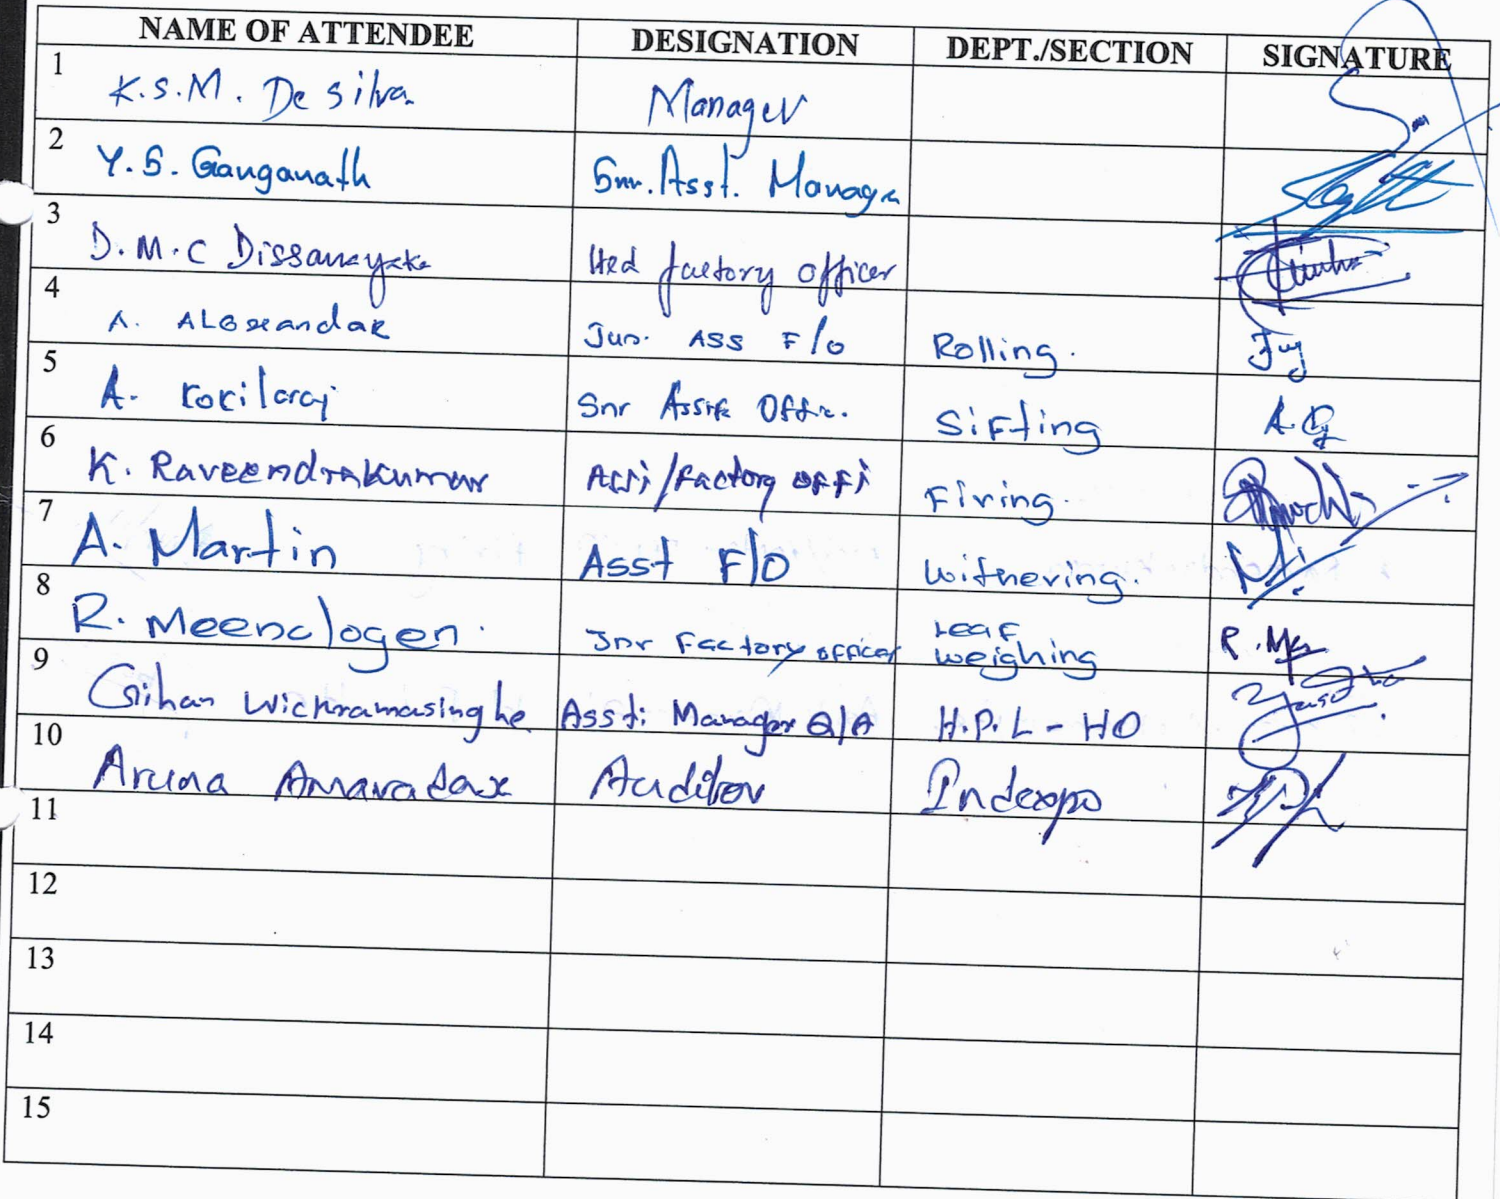 NAME OF ATTENDEE DESIGNATION DEPT./SECTION SIGNATURE
1 K.S.M. De Silva Manager
2 Y.S. Ganganath Snr. Asst. Manager
3 D.M.C Dissanayake Hed factory officer
4 A. ALexandar Jun. ASS F/O Rolling.
5 A. Kokilaraj Snr Assit Offic. Sifting
6 K. Raveendrakumar Assi/factory offi Firing.
7 A. Martin Asst F/O Withering.
8 R. Meenalogen. Jnr Factory officer Leaf
weighing R.
9 Gihan Wickramasinghe Asst: Manager Q/A H.P.L - HO
10 Aruna Amaradasa Auditor Indexpo
11
12
13
14
15